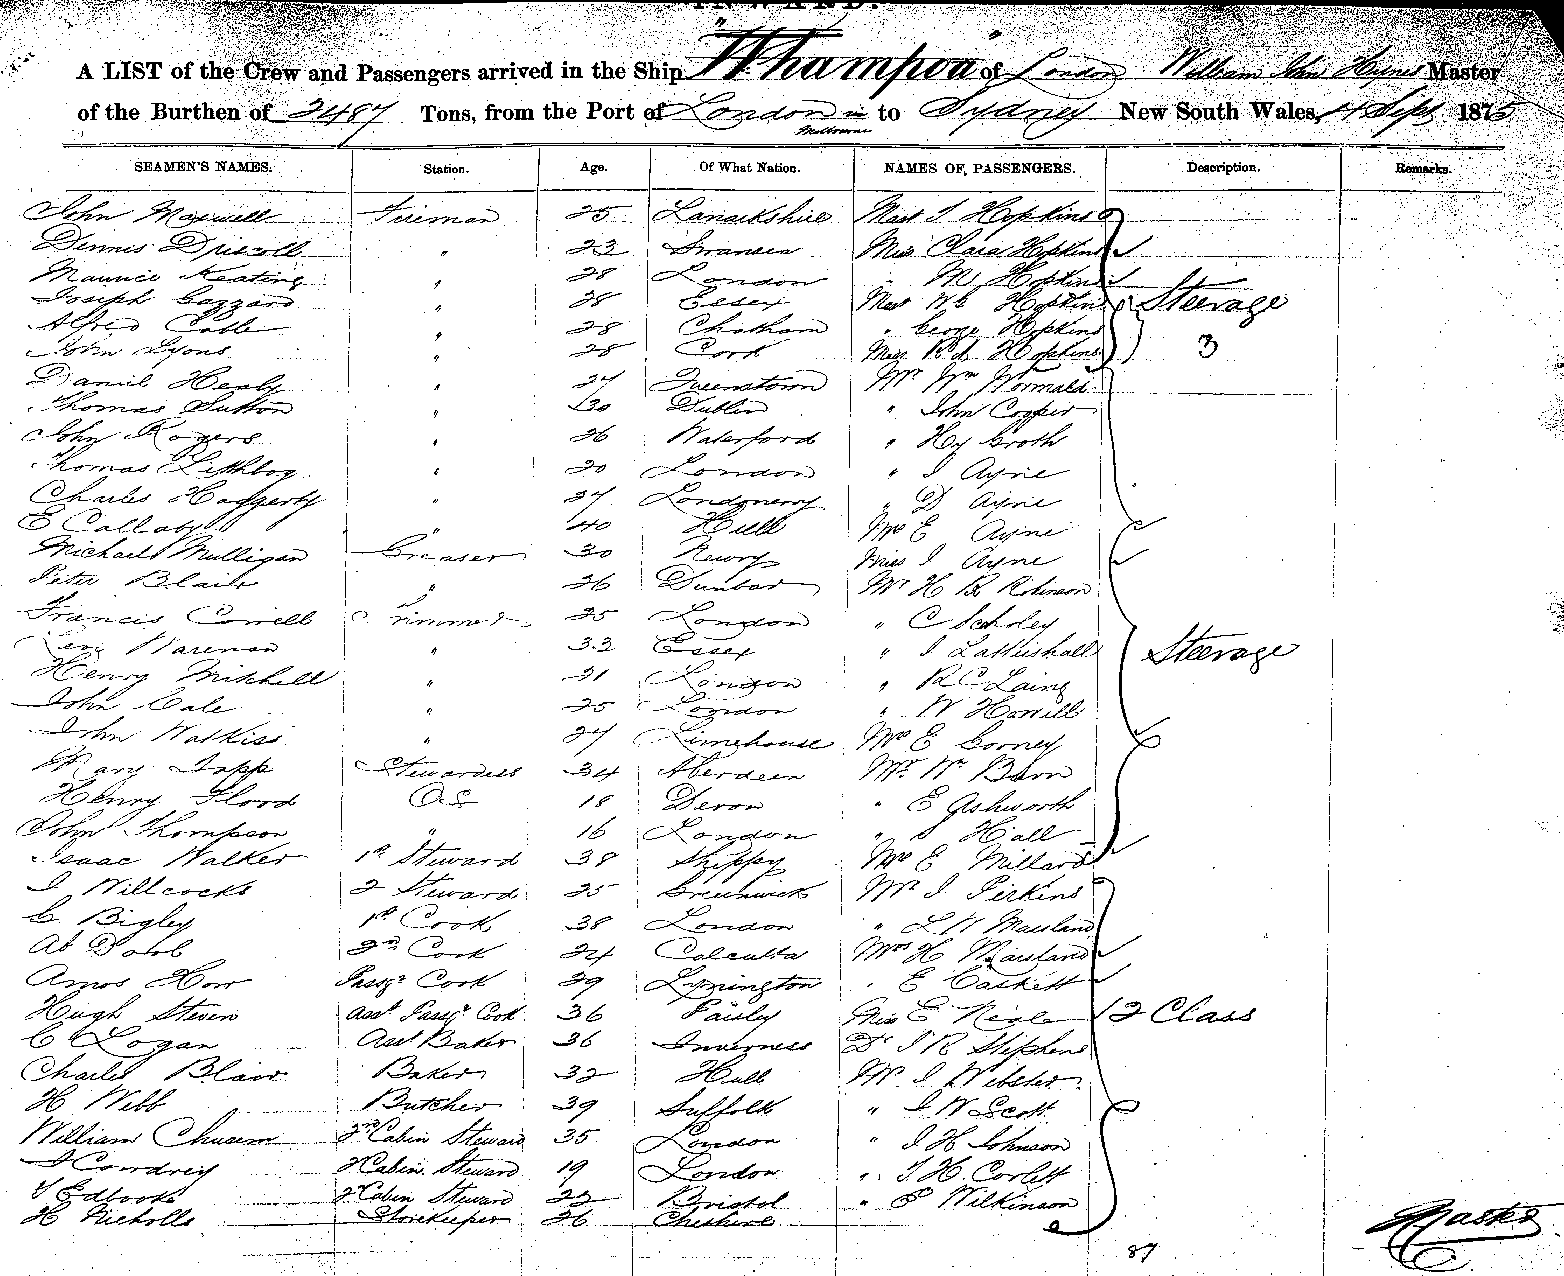 INWARD.
A LIST of the Crew and Passengers arrived in the Ship "Whampoa" of London William John Haynes Master
of the Burthen of 2487 Tons, from the Port of London via Melbourne to Sydney New South Wales, 4 Sept 1875
SEAMEN'S NAMES. Station. Age. Of What Nation. NAMES OF PASSENGERS. Description. Remarks.
John Maxwell Fireman 25 Lanarkshire Mast J Hopkins
Dennis Driscoll " 23 Swansea Miss Clara Hopkins
Maurice Keating " 28 London " M Hopkins
Joseph Gozzard " 28 Essex Mast W G Hopkins Steerage
Alfred Cable " 28 Chatham " George Hopkins
John Lyons " 28 Cork Miss R L Hopkins 3
Daniel Henly " 27 Queenstown Mr Wm Wormald
Thomas Sutton " 30 Dublin " John Cooper
John Rogers " 26 Waterford " Hy Groth
Thomas " 20 London " J Ayne
Charles Haggerty " 27 Londonerry " D Ayne
E Callaby " 40 Hull Mrs E Ayne
Michael Mulligan Greaser 30 Newry Miss J Ayne
Peter Blair " 26 Dunbar Mr H B Robinson
Francis Correll Trimmer 25 London " C Scholey
Levi Wareman " 33 Essex " J
Henry Mitchell " 21 London " R C Laing
John Cale " 25 London " W Howill Steerage
John Watkiss " 27 Limehouse Mrs E Gorney
Mary Tapp Stewardess 34 Aberdeen Mr Wm Barn
Henry Flood O.S 18 Devon " E Ashworth
John Thompson " 16 London " S Hall
Isaac Walker 1st Steward 38 Shippy Mrs E Millard
J Willcocks 2 Steward 25 Greenwich Mr J Perkins
C Bigley 1st Cook 38 London " L W Marsland
Ab Doob 2nd Cook 24 Calcutta Mrs H Marsland
Amos How Passgr Cook 29 Lymington " E Caskett
Hugh Steven Asst Passgr Cook 36 Paisly Miss E Neale 2 Class
C Logan Asst Baker 36 Inverness Dr J R Stephens
Charles Blair Baker 32 Hull Mr J Webster
H Webb Butcher 39 Suffolk " J W Scott
William 2nd Cabin Steward 35 London " J H Johnson
J Cowdrey 2 Cabin Steward 19 London " T H Corlett
T Edbooke 2nd Cabin Steward 22 Bristol " P Wilkinson
H Nicholls Storekeeper 26 Cheshire
87
Master